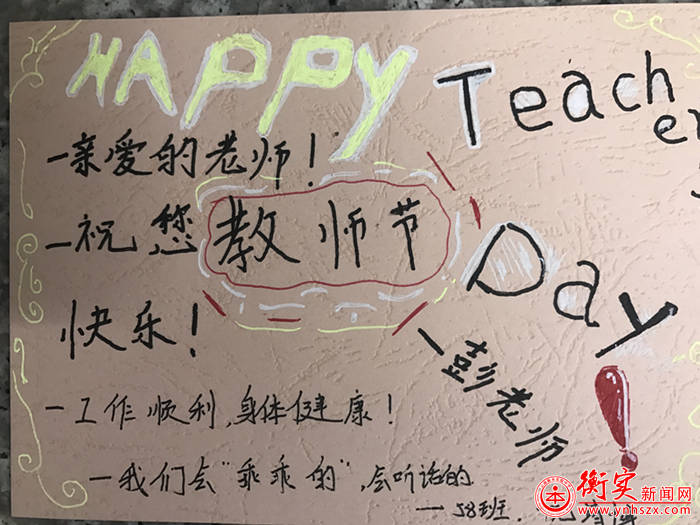 HAPPY Teach
er
Day
一亲爱的老师！
一祝您教师节
快乐！
一彭老师
一工作顺利,身体健康！
一我们会“乖乖的”会听话的
一58班
衡实新闻网
www.ynhszx.com